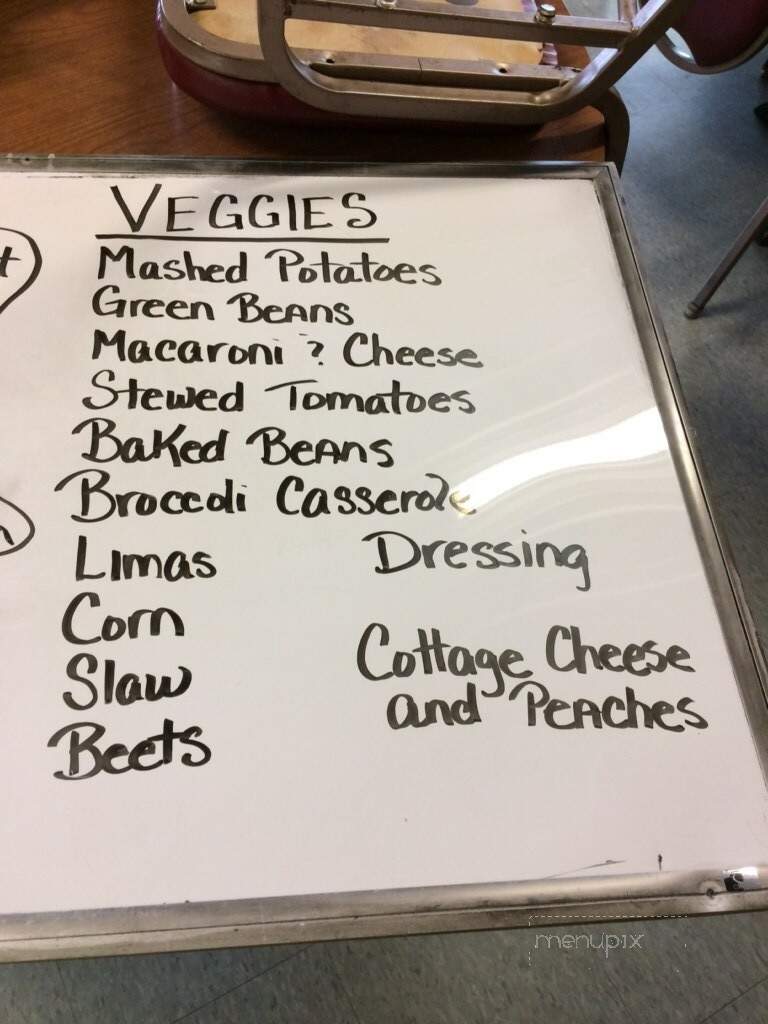 VEGGIES
Mashed Potatoes
Green Beans
Macaroni ? Cheese
Stewed Tomatoes
Baked Beans
Broccoli Casserole
Limas
Dressing
Corn
Cottage Cheese
and Peaches
Slaw
Beets
menupix